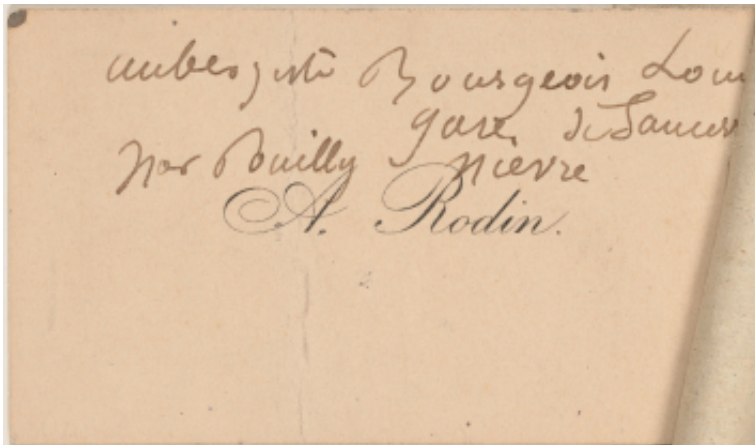 aubergiste Bourgeois Loui
gare de Sancer
par Pouilly Nièvre
A. Rodin.